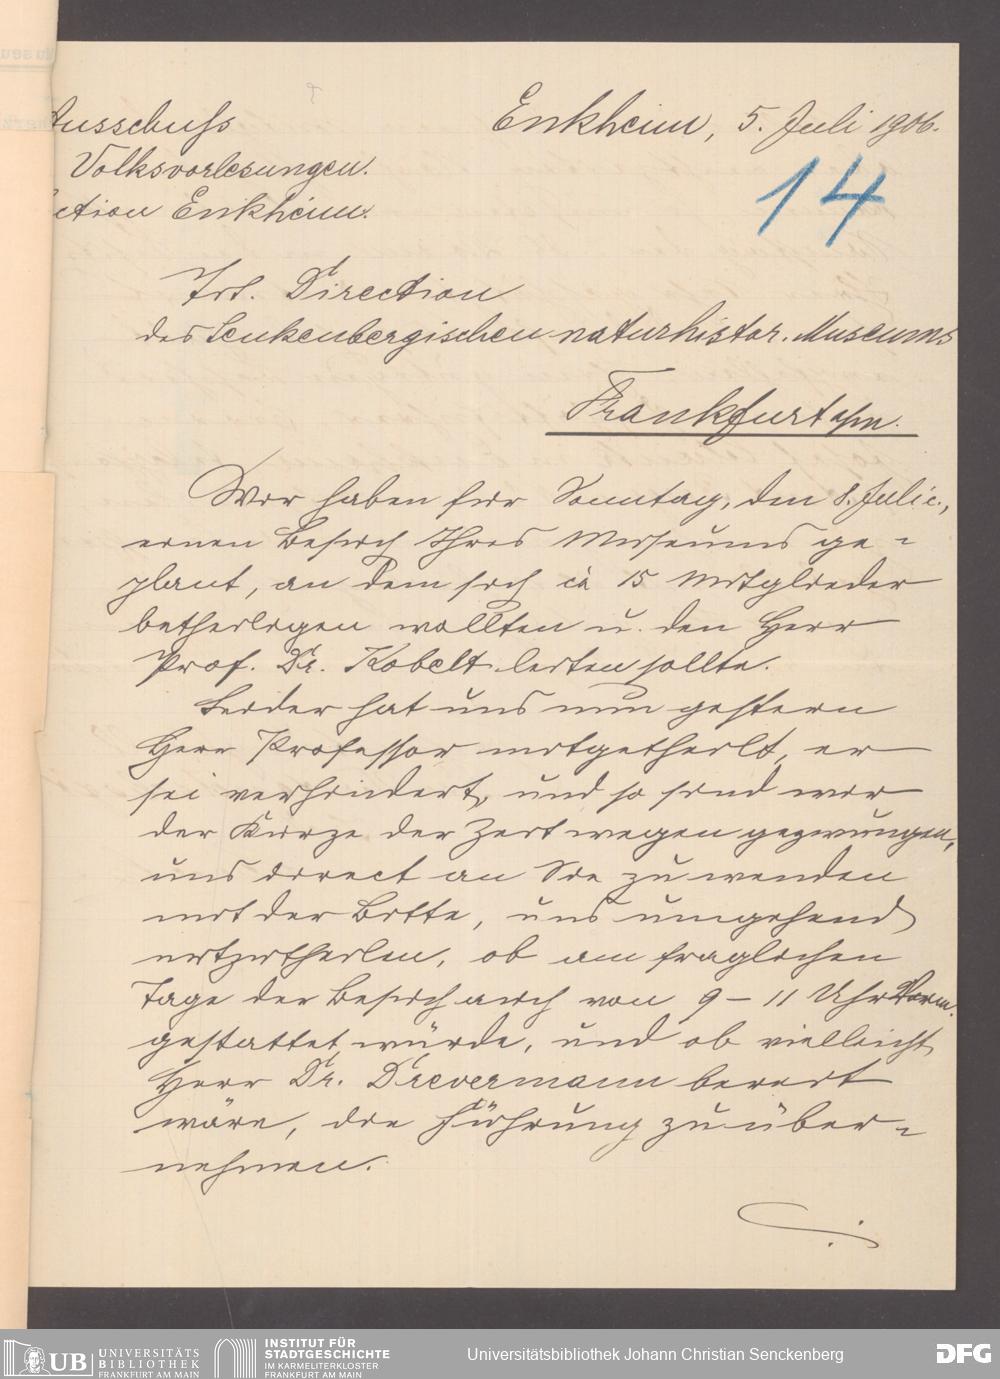 Ausschuss
Enkheim, 5. Juli 1906.
Volksvorlesungen.
ction Enkheim.
14
Tit. Direction
des Senkenbergischen naturhistor. Museums
Frankfurt a/m.
Wir haben für Sonntag, den 8. Juli c.,
einen Besuch Ihres Museums ge-
plant, an dem sich ca 15 Mitglieder
betheiligen wollten u. den Herr
Prof. Dr. Kobelt leiten sollte.
Leider hat uns nun gestern
Herr Professor mitgetheilt, er
sei verhindert, und so sind wir
der Kürze der Zeit wegen gezwungen,
uns direct an Sie zu wenden
mit der Bitte, uns umgehend
mitzutheilen, ob am fraglichen
Tage der Besuch auch von 9 – 11 Uhr Vorm.
gestattet würde, und ob vielleicht
Herr Dr. Drevermann bereit
wäre, die Führung zu über-
nehmen.
UB UNIVERSITÄTS
BIBLIOTHEK
FRANKFURT AM MAIN
INSTITUT FÜR
STADTGESCHICHTE
IM KARMELITERKLOSTER
FRANKFURT AM MAIN
Universitätsbibliothek Johann Christian Senckenberg
DFG